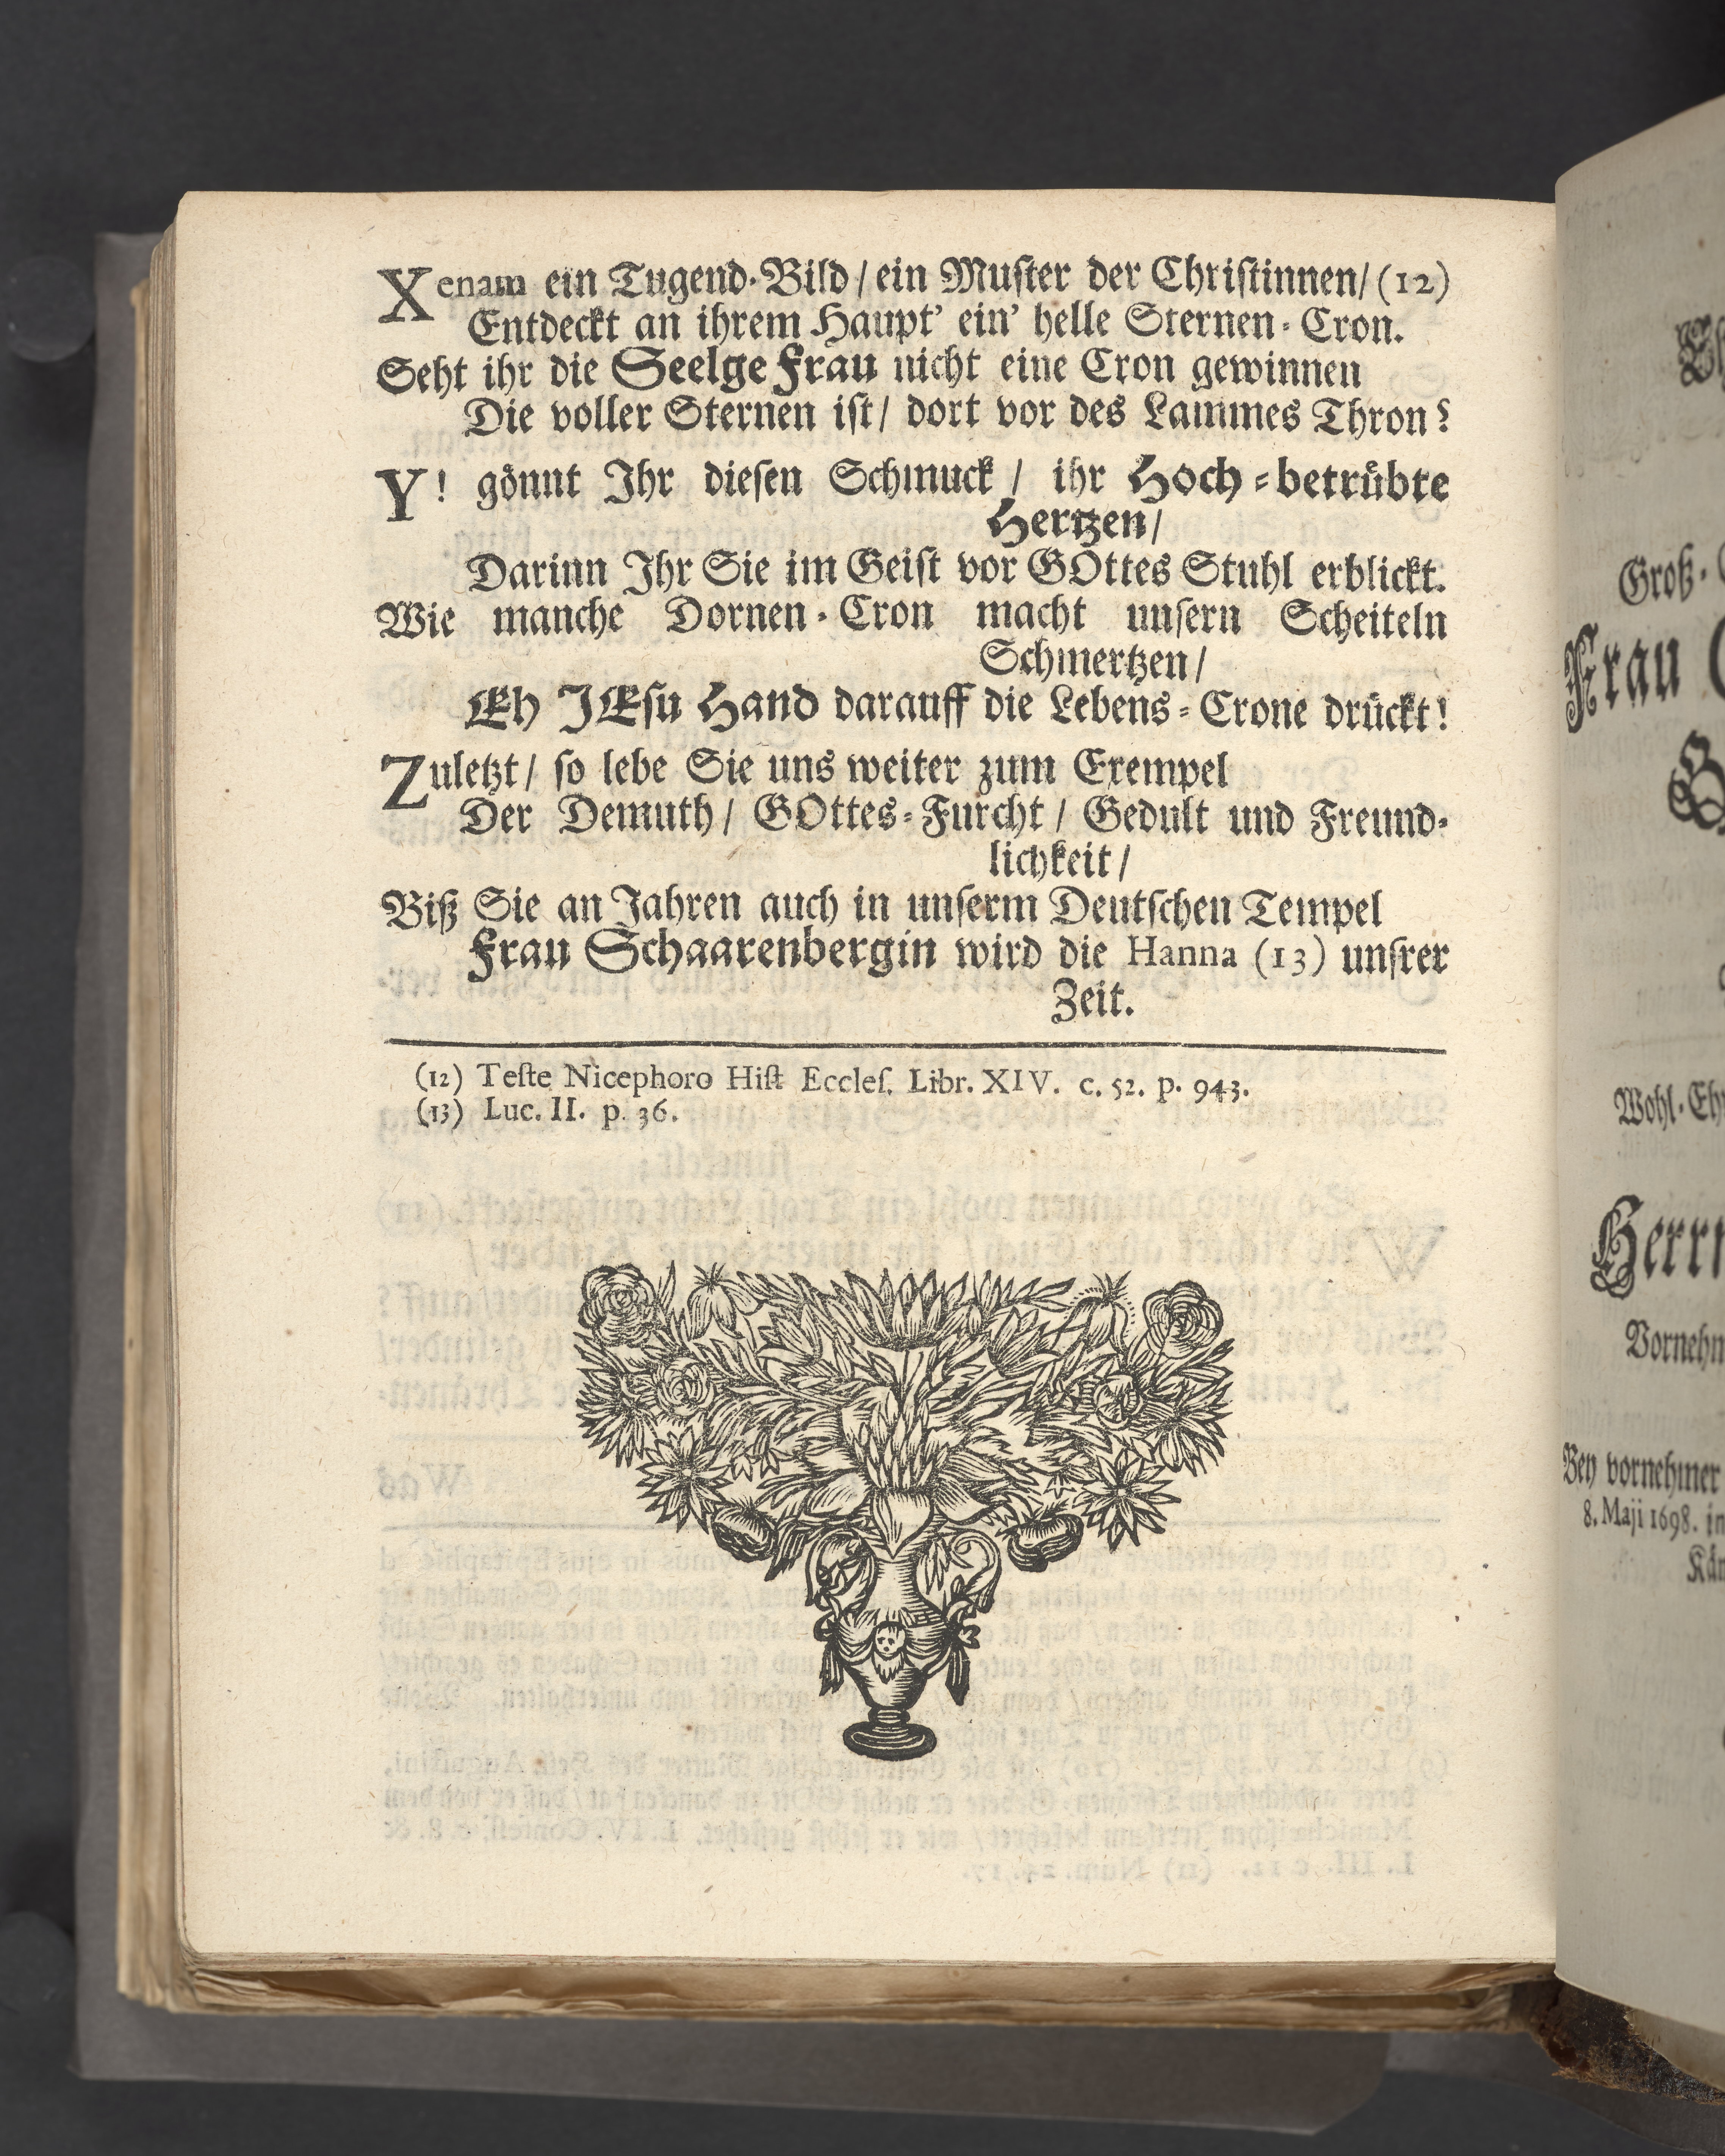 Xenam ein Tugend-Bild/ ein Muſter der Chriſtinnen/ (12)
Entdeckt an ihrem Haupt' ein' helle Sternen-Cron.
Seht ihr die Seelge Frau nicht eine Cron gewinnen
Die voller Sternen iſt/ dort vor des Lammes Thron?
Y! gönnt Ihr dieſen Schmuck/ ihr Hoch-betrübte
Hertzen/
Darinn Ihr Sie im Geiſt vor GOttes Stuhl erblickt.
Wie manche Dornen-Cron macht unſern Scheiteln
Schmertzen/
Eh JEſu Hand darauff die Lebens-Crone drückt!
Zuletzt/ ſo lebe Sie uns weiter zum Exempel
Der Demuth/ GOttes-Furcht/ Gedult und Freund-
lichkeit/
Biß Sie an Jahren auch in unſerm Deutſchen Tempel
Frau Schaarenbergin wird die Hanna (13) unſrer
Zeit.
(12) Teſte Nicephoro Hiſt Eccleſ. Libr. XIV. c. 52. p. 943.
(13) Luc. II. p. 36.
Groß-
Frau
Wohl-Eh
Herrn
Vornehm
Bey vornehmer
8. Maji 1698. in